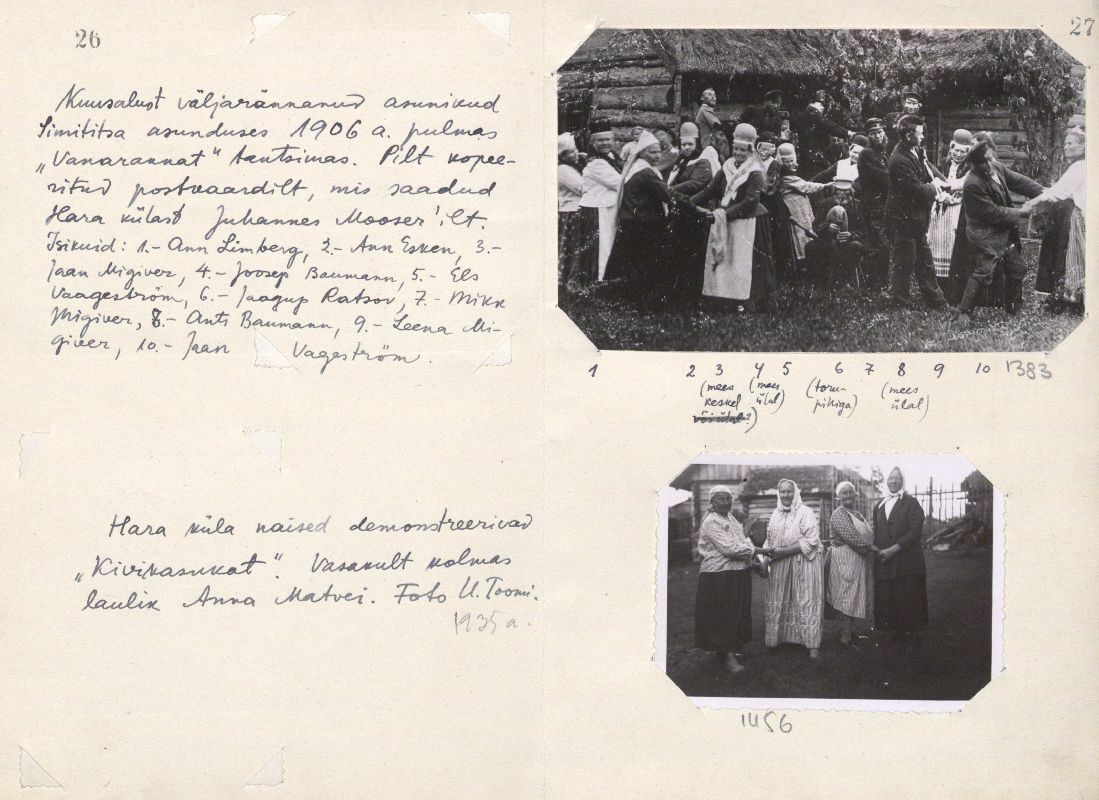 26
Kuusalust väljarännanud asunikud
Simititsa asunduses 1906 a. pulmas
„Vanarannat" tantsimas. Pilt kopee-
ritud postkaardilt, mis saadud
Hara külast Juhannes Mooser'ilt.
Isikuid: 1.- Ann Limberg, 2.- Ann Esken, 3.-
Jaan Migiver, 4.- Joosep Baumann, 5.- Els
Vaageström, 6.- Jaagup Ratsov, 7.- Mikk
Migiver, 8.- Ants Baumann, 9.- Leena Mi-
giver, 10.- Jaan Vageström.
Hara küla naised demonstreerivad
„Kivikasukat". Vasakult kolmas
laulik Anna Matvei. Foto U. Toomi.
1935 a.
27
1 2 3 4 5 6 7 8 9 10 1383
(mees (mees (toru- (mees
keskel ülal) pilliga) ülal)
või ülal?)
1456